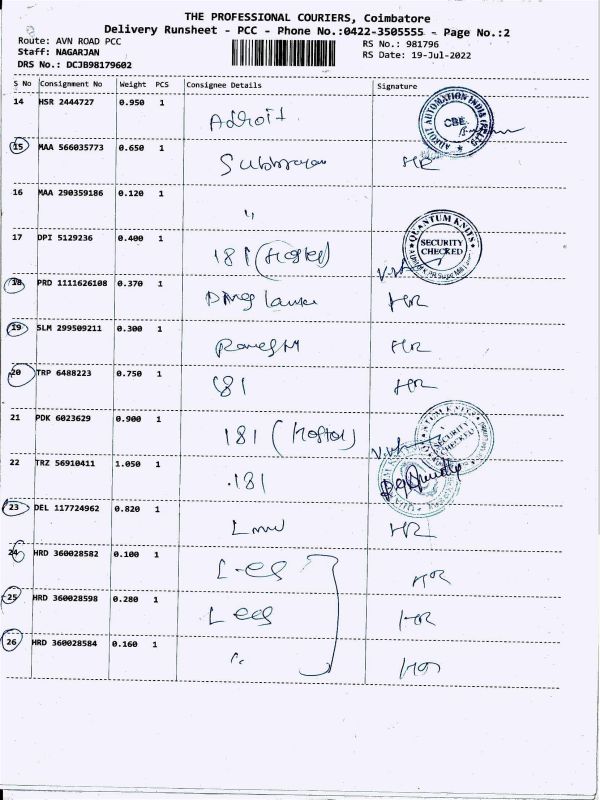 THE PROFESSIONAL COURIERS, Coimbatore
Delivery Runsheet - PCC - Phone No.:0422-3505555 - Page No.:2
Route: AVN ROAD PCC
RS No.: 981796
Staff: NAGARJAN
RS Date: 19-Jul-2022
DRS No.: DCJB98179602
S No Consignment No Weight PCS Consignee Details Signature
14 HSR 2444727 0.950 1 Adroit ADROIT AUTOMATION INDIA CBE
15 MAA 566035773 0.650 1 HR
16 MAA 290359186 0.120 1 "
17 DPI 5129236 0.400 1 181 (Hostel) QUANTUM KNITS SECURITY CHECKED
18 PRD 1111626108 0.370 1 HR
19 SLM 299509211 0.300 1 HR
20 TRP 6488223 0.750 1 181 HR
21 PDK 6023629 0.900 1 181 (Hostel) QUANTUM KNITS SECURITY CHECKED
22 TRZ 56910411 1.050 1 181
23 DEL 117724962 0.820 1 HR
24 HRD 360028582 0.100 1 HR
25 HRD 360028598 0.280 1 HR
26 HRD 360028584 0.160 1 HR